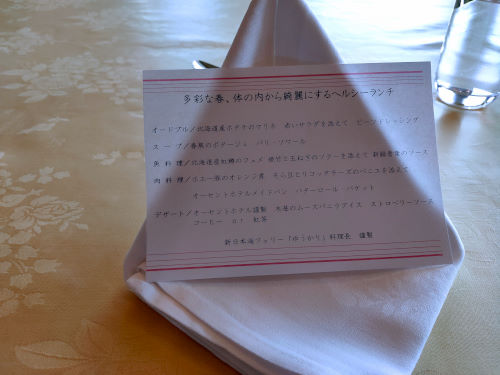 多彩な春、体の内から綺麗にするヘルシーランチ
オードブル／北海道産ホタテのマリネ 赤いサラダを添えて ビーツドレッシング
スープ／春風のポタージュ パリ・ソワール
魚料理／北海道産虹鱒のフュメ 焼竹と玉ねぎのソテーを添えて 新緑香菜のソース
肉料理／ホエー豚のオレンジ煮 そら豆とリコッタチーズのベニエを添えて
オーセントホテルメイドパン バターロール・バケット
デザート／オーセントホテル謹製 木苺のムースバニラアイス ストロベリーソース
コーヒー or 紅茶
新日本海フェリー「ゆうかり」料理長 謹製